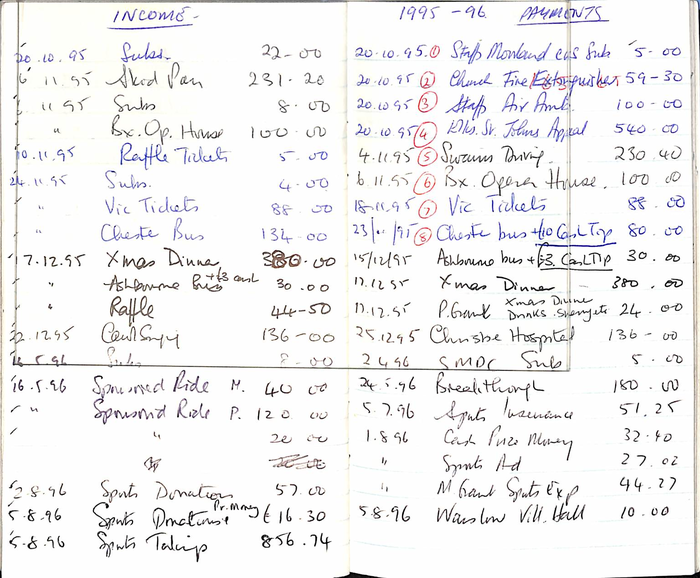 INCOME -
20.10.95 Subs. 22-00
6 11.95 Skid Pan 231.20
11.95 Subs 8.00
" Bx. Op. House 100.00
10.11.95 Raffle Tickets 5.00
24.11.95 Subs. 4.00
" Vic Tickets 88.00
" Cheste Bus 134-00
17.12.95 Xmas Dinner 380.00
" Ashbourne Bus +£3 cash 30.00
" Raffle 44-50
22.12.95 136-00
5.96 Subs 8-00
16.5.96 Sponsored Ride M. 40 00
" Sponsored Ride P. 120 00
" 20 00
2.8.96 Sports Donations 57.00
5.8.96 Sports Donations Pr. Money £16.30
5.8.96 Sports Takings 856.74
1995-96 PAYMENTS
20.10.95. 1 Staffs Subs 5-00
20.10.95 2 Church Fire Extinguisher 59-30
20.10.95 3 Staffs Air Amb. 100-00
20.10.95 4 St. Johns Appeal 540.00
4.11.95 5 Driving. 230.40
6 11.95 6 Bx. Opera House. 100 00
18-11.95 7 Vic Tickets 88.00
23/11/95 8 Cheste bus +£10 Cash Tip 80.00
15/12/95 Ashbourne bus + £3 Cash Tip 30.00
17.12.95 Xmas Dinner - 380.00
17.12.95 P. Grant Xmas Dinner Drinks 24.00
25.12.95 Christie Hospital 136-00
2 4.96 SMDC Sub 5.00
24.5.96 Breakthrough 180.00
5.7.96 Sports Insurance 51.25
1.8.96 Cash Prize Money 32.40
" Sports Ad 27.02
" M Grant Sports Exp 44.27
5.8.96 Warslow Vill. Hall 10.00